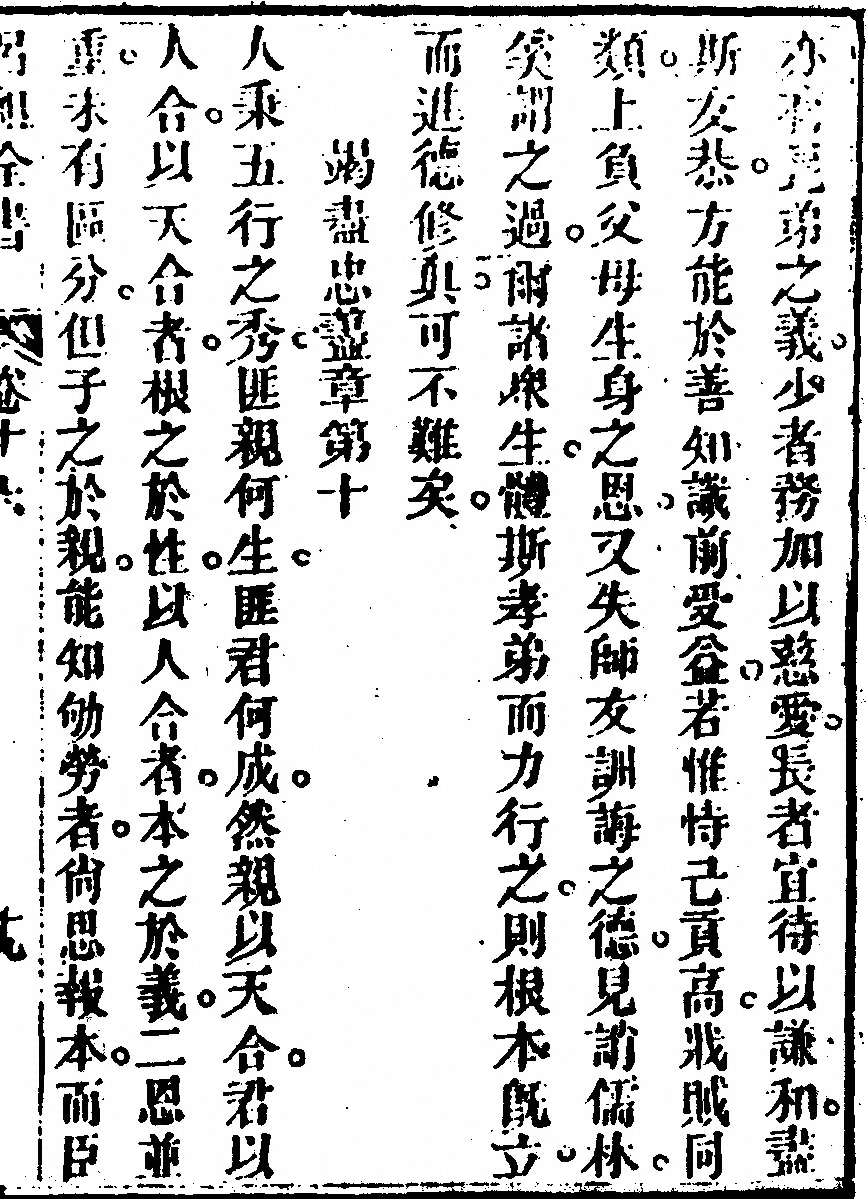 亦有兄弟之義少者務加以慈愛長者宜待以謙和盡
斯友恭方能於善知識前受益若惟恃己貢高戕賊同
類上負父母生身之恩又失師友訓誨之德見誚儒林
矣謂之過爾諸衆生體斯孝弟而力行之則根本既立
而進德修真可不難矣
竭盡忠藎章第十
人秉五行之秀匪親何生匪君何成然親以天合君以
人合以天合者根之於性以人合者本之於義二恩並
重未有區分但子之於親能知劬勞者尚思報本而臣
呂祖全書 卷十六 九